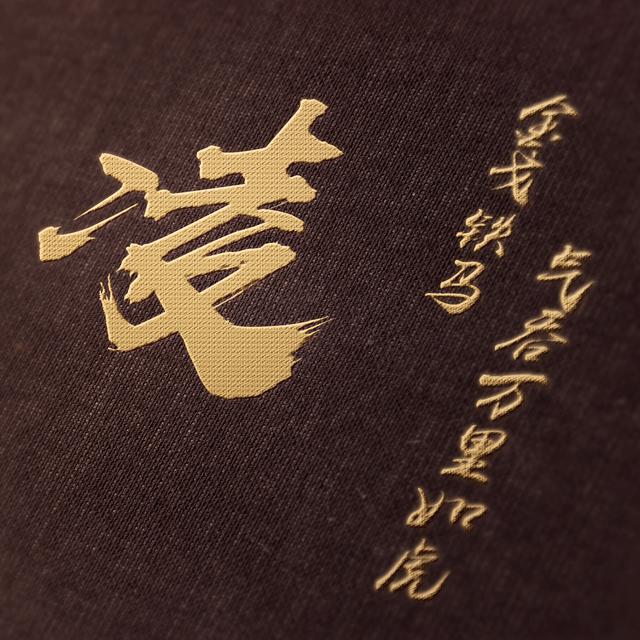 金戈铁马
气吞万里如虎